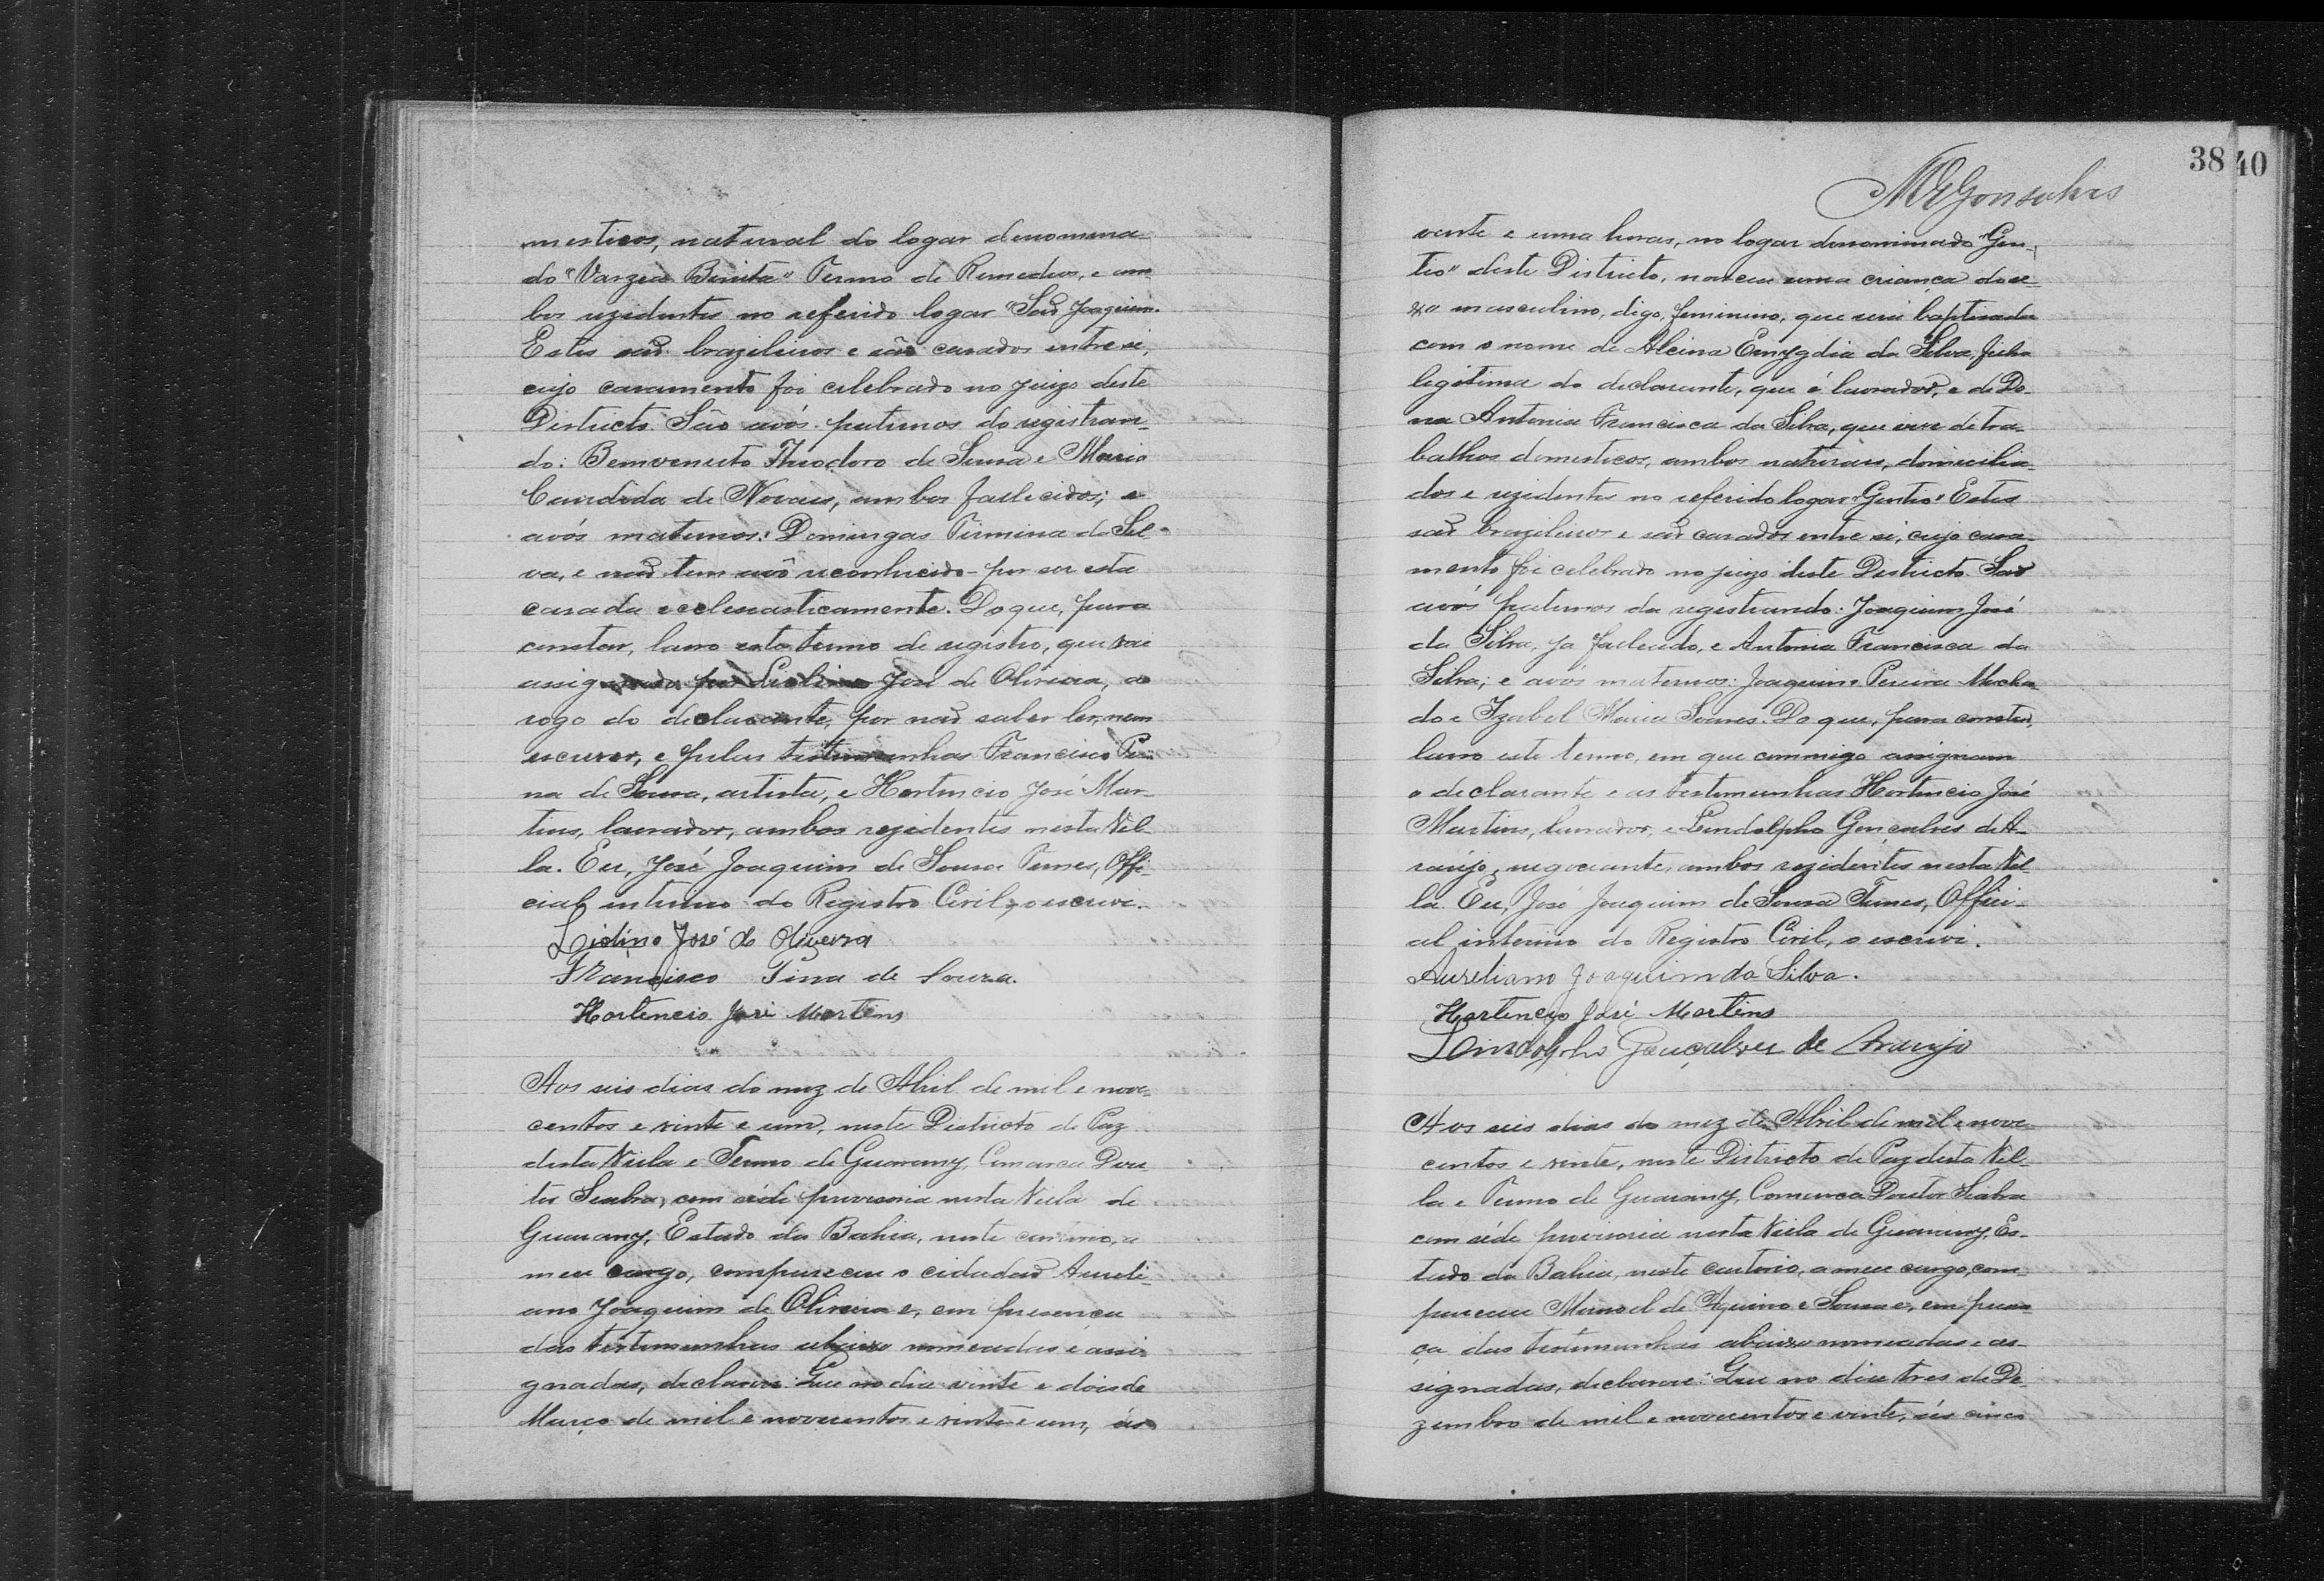 mesticos, natural do logar denomina-
do "Varzea Bonita" Termo de Remedios, e am-
bos rezidentes no referido logar "São Joaquim.
Estes são brazileiros e são casados entre si,
cujo casamento foi celebrado no juizo deste
Districto. São avós paternos do registran-
do: Bemvenuto Theodoro de Sousa e Maria
Candida de Novaes, ambos fallecidos; e
avós maternos: Domingas Firmina da Sil-
va, e não tem avô reconhecido por ser esta
casada ecclesiasticamente. Do que, para
constar, lavro este termo de registro, que vae
assignado por Liolino José de Oliveira, a
rogo do declarante, por não saber ler, nem
escrever, e pelas testemunhas Francisco Pin-
na de Sousa, artista, e Hortencio José Mar-
tins, lavrador, ambos rezidentes nesta Vil-
la. Eu, José Joaquim de Sousa Tunes, Offi-
cial interino do Registro Civil, o escrivi.
Liolino José de Oliveira
Francisco Pina de Souza.
Hortencio José Martins
Aos seis dias do mez de Abril de mil e nove-
centos e vinte e um, neste Districto de Paz
desta Villa e Termo de Guarany, Comarca Dou-
tor Seabra, com séde provisoria nesta Villa de
Guarany, Estado da Bahia, neste cartorio, a
meu cargo, compareceu o cidadão Aureli-
ano Joaquim de Oliveira e, em presença
das testemunhas abaixo nomeadas e assi-
gnadas, declarou: Que no dia vinte e dois de
Março de mil e novecentos e vinte e um, ás
38 40
MGonsalves
vinte e uma horas, no logar denominado "Gen-
tio" deste Districto, nasceu uma criança do se-
xo masculino, digo, feminino, que será baptisada
com o nome de Alcina Emygdia da Silva, filha
legitima do declarante, que é lavrador, e de Do-
na Antonia Francisca da Silva, que vive de tra-
balhos domesticos, ambos naturaes, domicilia-
dos e rezidentes no referido logar "Gentio" Estes
são brazileiros e são casados entre si, cujo casa-
mento foi celebrado no juizo deste Districto. São
avós paternos da registranda: Joaquim José
da Silva, ja fallecido, e Antonia Francisca da
Silva; e avós maternos: Joaquim Pereira Macha-
do e Izabel Maria Soares. Do que, para constar,
lavro este termo, em que commigo assignam
o declarante e as testemunhas Hortencio José
Martins, lavrador, e Lindolpho Gonçalves de A-
raújo, negociante, ambos rezidentes nesta Vil-
la. Eu, José Joaquim de Sousa Tunes, Offici-
al interino do Registro Civil, o escrivi.
Aureliano Joaquim da Silva.
Hortencio José Martins
Lindolpho Gonçalves de Araujo
Aos seis dias do mez de Abril de mil e nove-
centos e vinte, neste Districto de Paz desta Vil-
la e Termo de Guarany, Comarca Doutor Seabra
com séde provisoria nesta Villa de Guarany, Es-
tado da Bahia, neste cartorio, a meu cargo, com-
pareceu Manoel de Aquino e Sousa e, em presen-
ça das testemunhas abaixo nomeadas e as-
signadas, declarou: Que no dia tres de De-
zembro de mil e novecentos e vinte, ás cinco